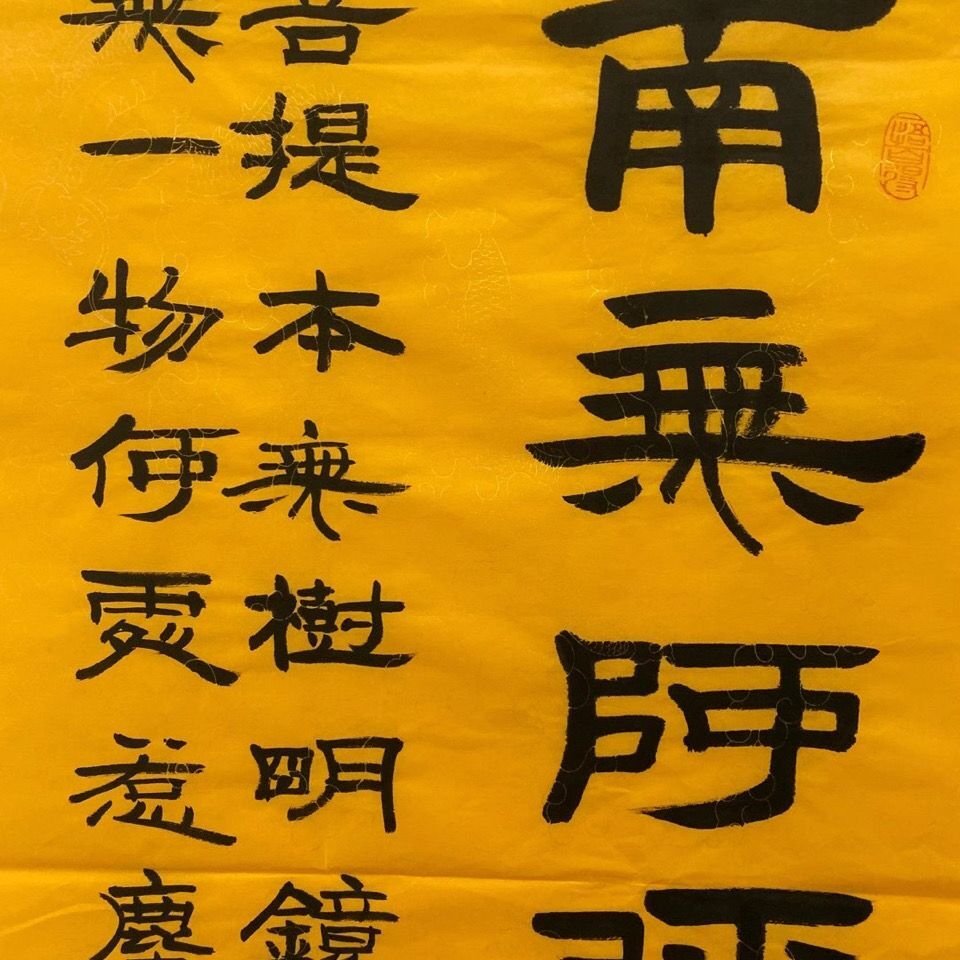 南無阿
菩提本無樹明鏡
無一物何處惹塵